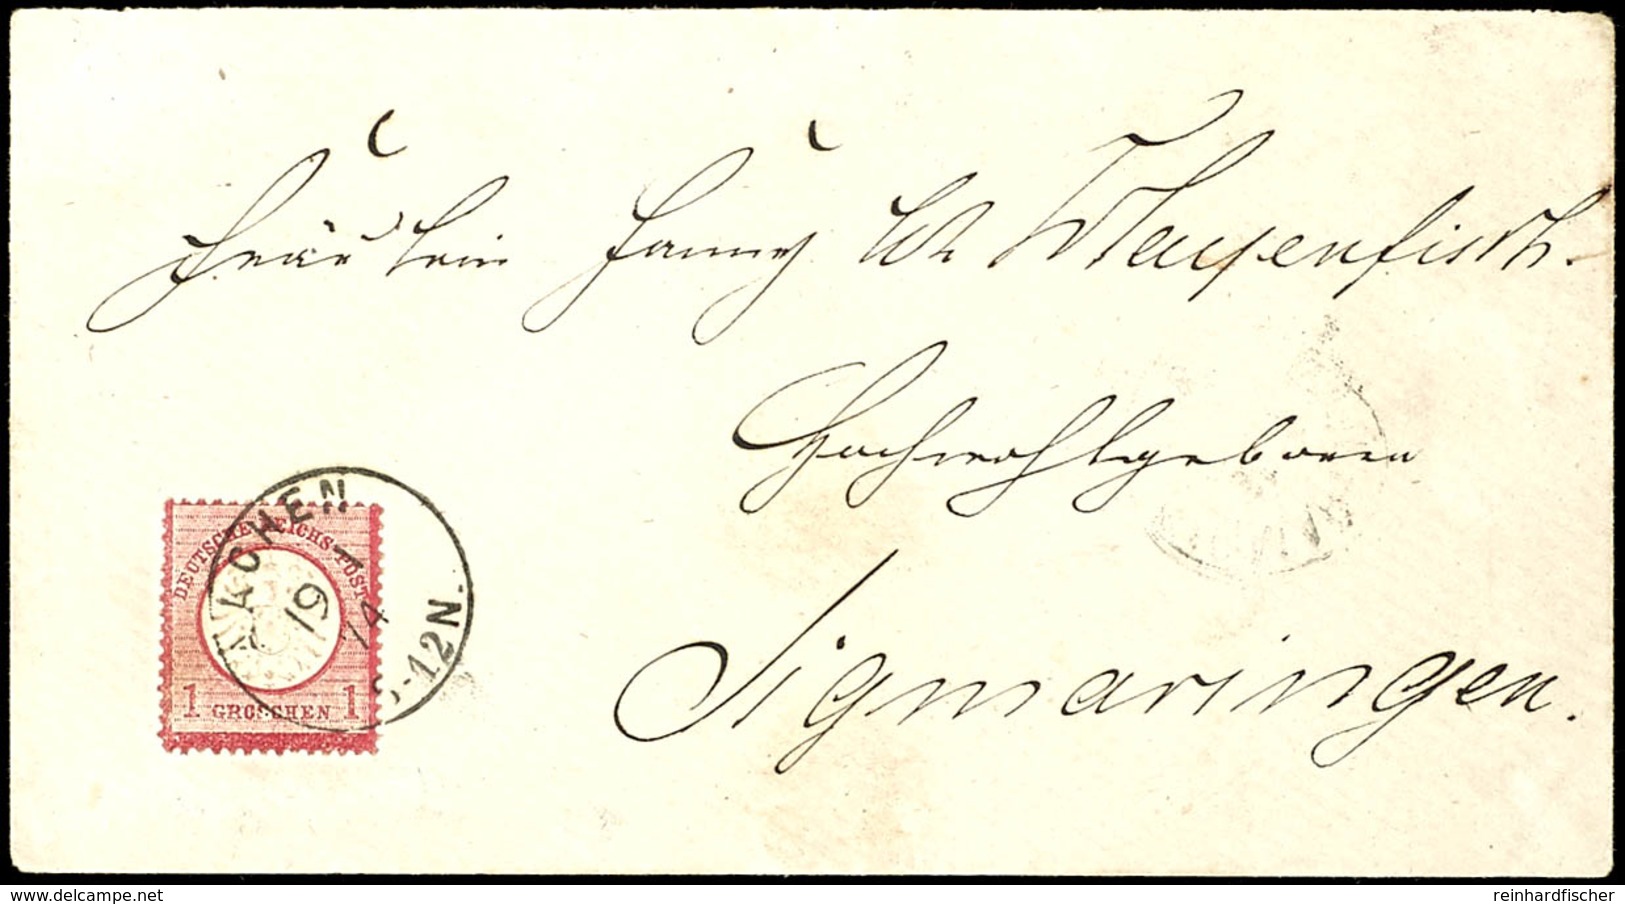 Fräulein Fanny
Hochwohlgeboren
Sigmaringen.
DEUTSCHE REICHS-POST
1 GROSCHEN 1
19 1
74
-12N.
delcampe.net
reinhardfischer